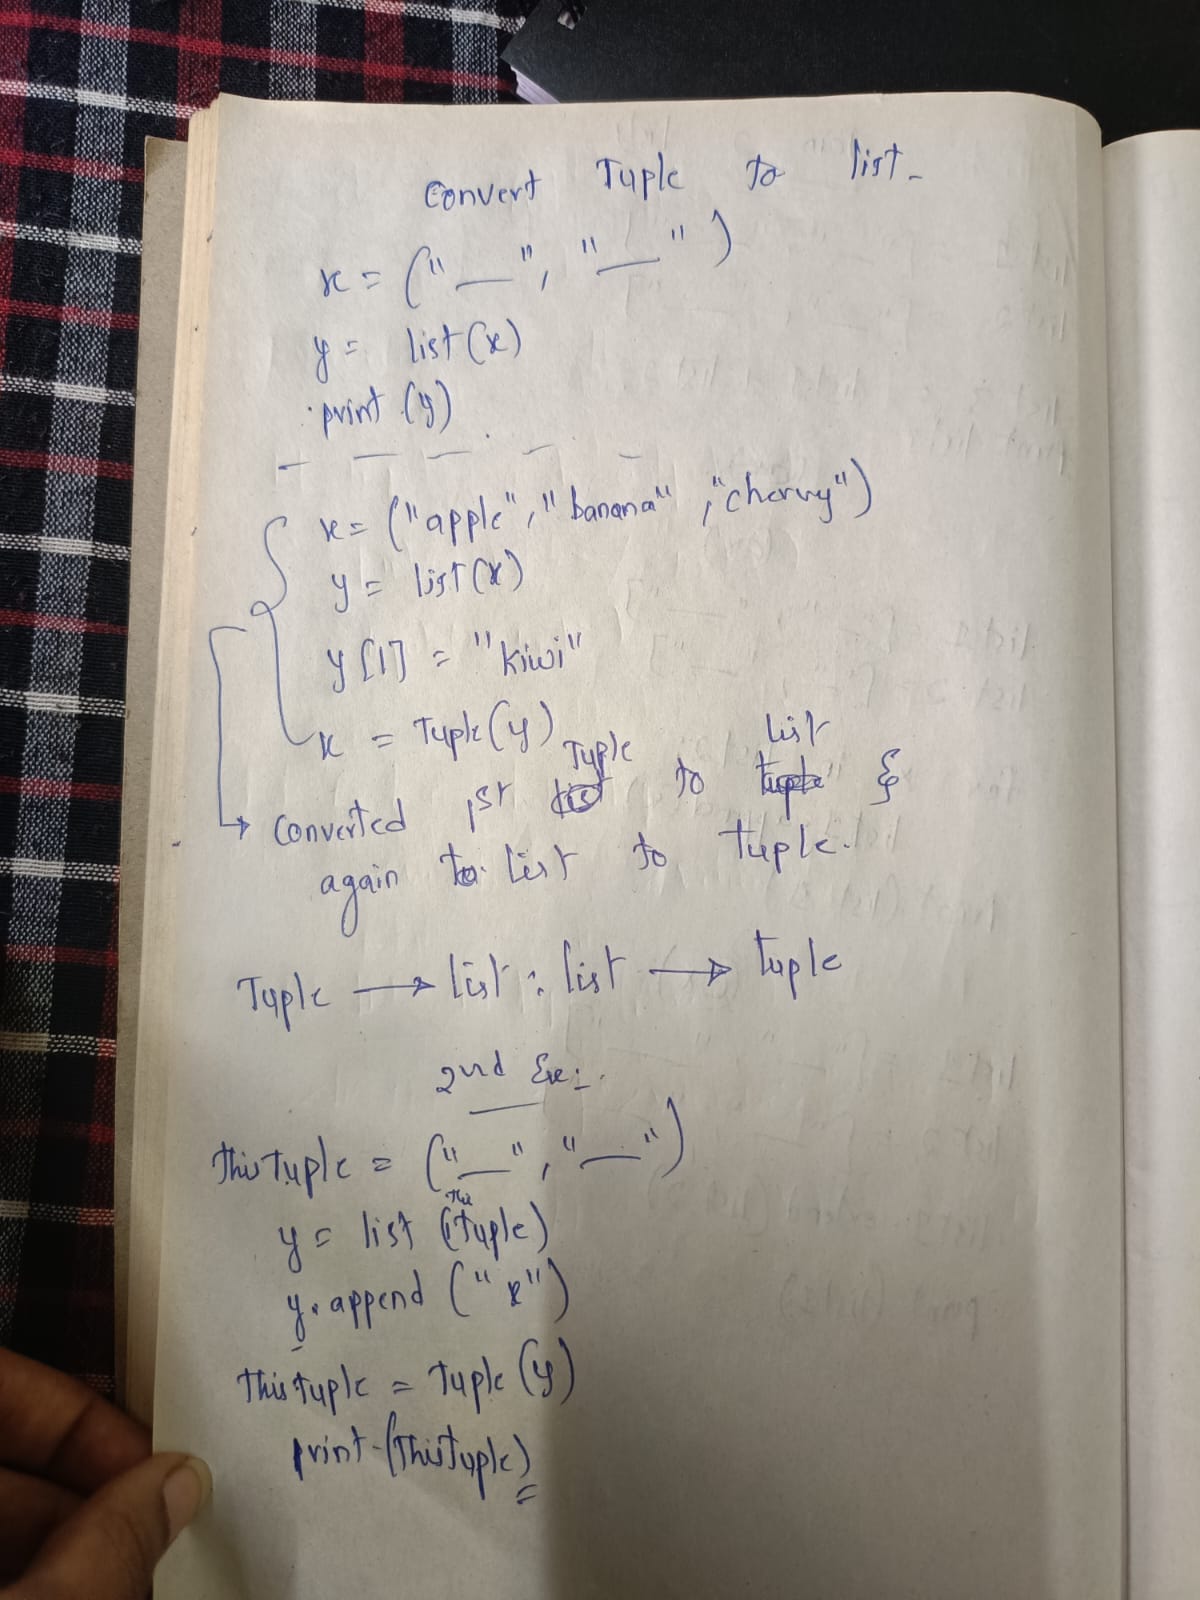 Convert Tuple to list.
x = ("__", "__")
y = list(x)
print (y)
x = ("apple", "banana", "cherry")
y = list(x)
y[1] = "kiwi"
x = Tuple(y)
Converted 1st Tuple to list &
again to list to tuple.
Tuple → list : list → tuple
2nd Ex:-
thistuple = ("__", "__")
y = list (thistuple)
y.append ("x")
thistuple = tuple (y)
print (thistuple)